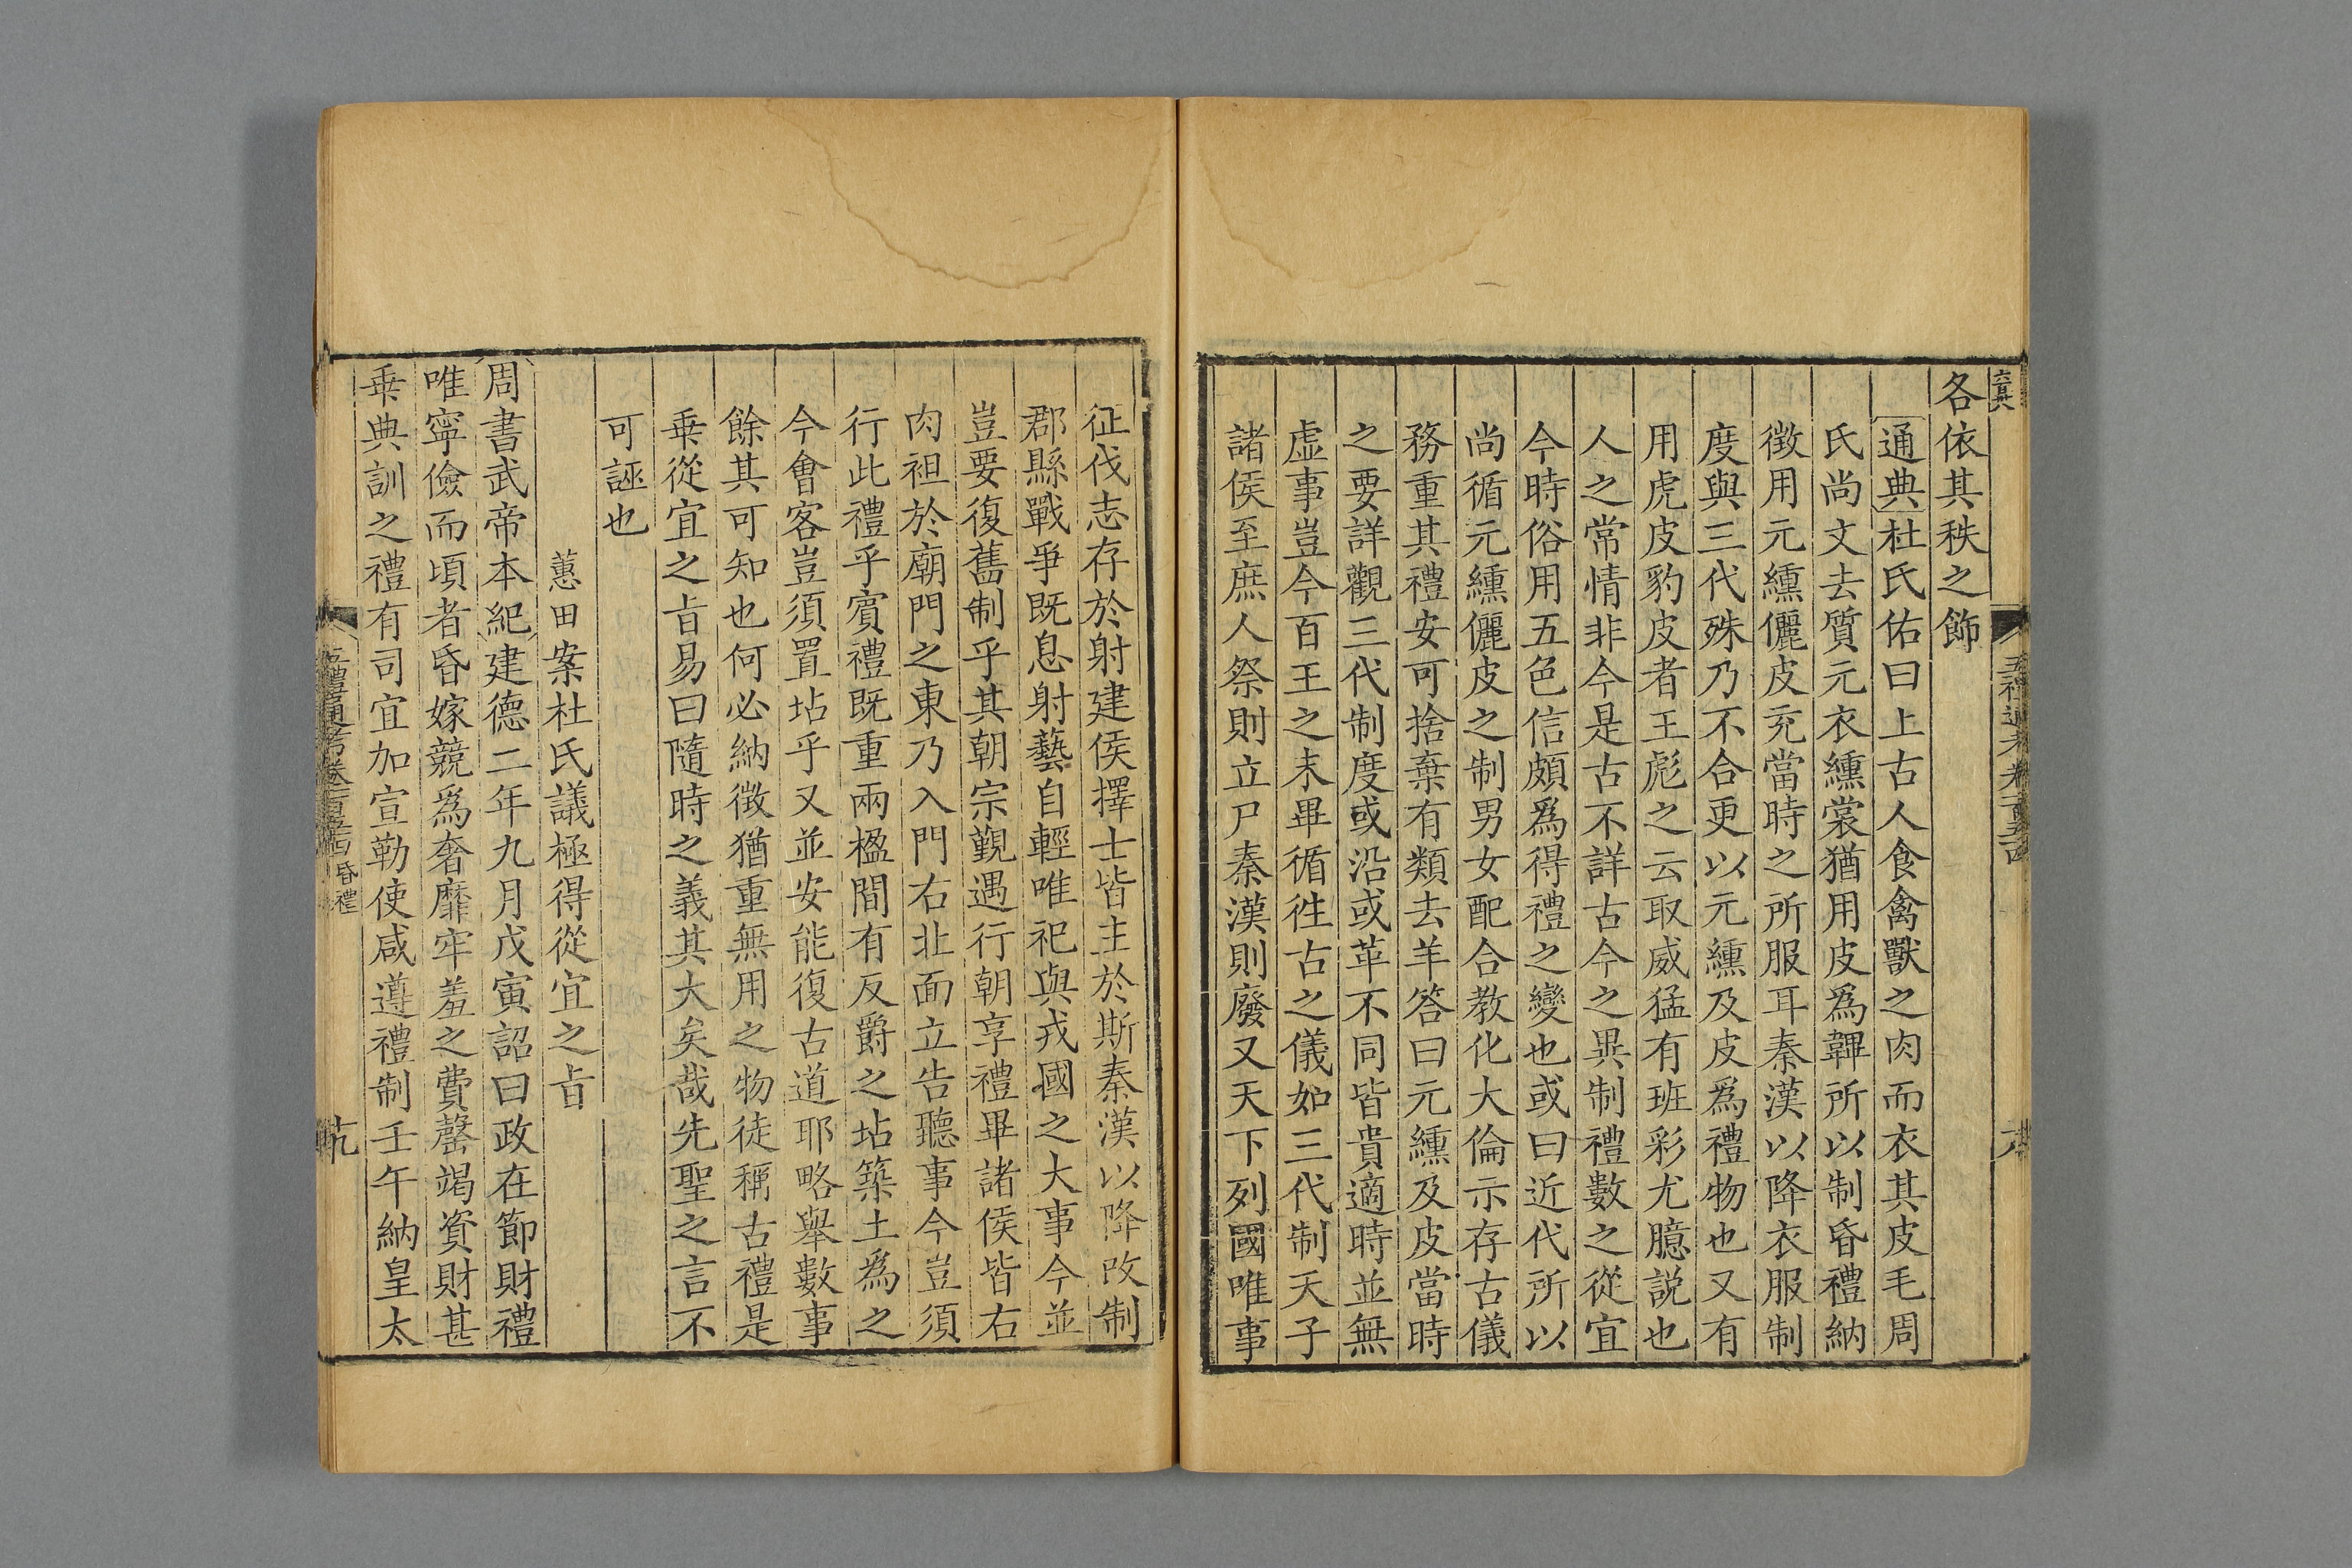 各依其秩之飾
通典杜氏佑曰上古人食禽獸之肉而衣其皮毛周
氏尚文去質元衣纁裳猶用皮爲韠所以制昏禮納
徵用元纁儷皮充當時之所服耳秦漢以降衣服制
度與三代殊乃不合更以元纁及皮爲禮物也又有
用虎皮豹皮者王彪之云取威猛有班彩尤臆説也
人之常情非今是古不詳古今之異制禮數之從宜
今時俗用五色信頗爲得禮之變也或曰近代所以
尚循元纁儷皮之制男女配合教化大倫示存古儀
務重其禮安可捨棄有類去羊答曰元纁及皮當時
之要詳觀三代制度或沿或革不同皆貴適時並無
虛事豈今百王之末畢循徃古之儀如三代制天子
諸侯至庶人祭則立尸秦漢則廢又天下列國唯事
征伐志存於射建侯擇士皆主於斯秦漢以降改制
郡縣戰爭既息射藝自輕唯祀與戎國之大事今並
豈要復舊制乎其朝宗覲遇行朝享禮畢諸侯皆右
肉袒於廟門之東乃入門右北面立告聽事今豈須
行此禮乎賓禮既重兩楹間有反爵之坫築土爲之
今會客豈須置坫乎又並安能復古道耶略舉數事
餘其可知也何必納徵猶重無用之物徒稱古禮是
乗從宜之㫖易曰隨時之義其大矣哉先聖之言不
可誣也
蕙田案杜氏議極得從宜之㫖
周書武帝本紀建德二年九月戊寅詔曰政在節財禮
唯寧儉而頃者昏嫁競爲奢靡牢羞之費罄竭資財甚
乗典訓之禮有司宜加宣勒使咸遵禮制壬午納皇太
五禮通考卷一百五十四 昏禮